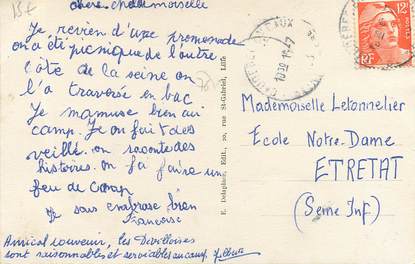 15F
chère Mademoiselle
Je revien d'une promenade
on a été picnique de l'autre
côté de la seine on
l'a traversé en bac
Je mamuse bien au
camp. Je on fait des
veillé. on raconte des
histoires. on fai faire un
feu de camp
Je vous embrase bien
Francoise
Amical souvenir, les
sont raisonnables et serviables au camp.
E. Delaplace, Edit., 20, rue St-Gabriel, Lille
12F
RF
Mademoiselle Letonnelier
Ecole Notre-Dame
ETRETAT
(Seine Inf)